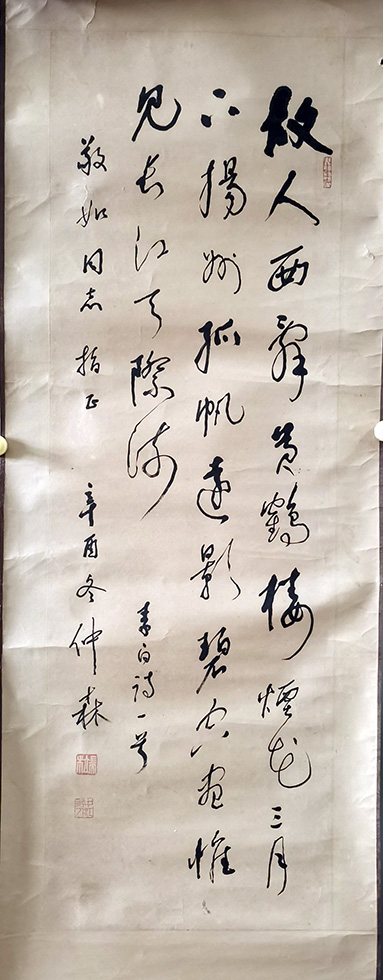 故人西辞黄鹤楼煙花三月
下揚州孤帆遠影碧空盡惟
見長江天際流
李白詩一首
敬如同志指正
辛酉冬仲森